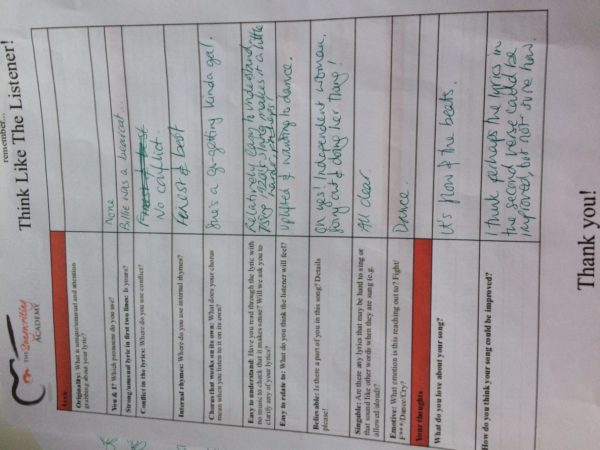 remember...
Think Like The Listener!
THE Songwriting
ACADEMY
Originality: What is unique/unusual and attention
grabbing about your lyric?
You & I? Which pronoun do you use?
None
Strong/unusual lyric in first two lines: Is yours?
Billie was a bearcat...
Conflict in the lyrics: Where do you use conflict?
No conflict.
Internal rhymes: Where do you use internal rhymes?
Finest & best
Chorus that works on its own: What does your chorus
mean when you listen to it on its own?
She's a go-getting kinda gal.
Easy to understand: Have you read through the lyric with
no music to check that it makes sense? Will we ask you to
clarify any of your lyrics?
Relatively easy to understand,
using 1920s slang makes it a little
harder
Easy to relate to: What do you think the listener will feel?
Uplifted & wanting to dance.
Believable: Is there a part of you in this song? Details
please!
Oh yes! Independent woman,
going out & doing her thang!
Singable: Are there any lyrics that may be hard to sing or
that sound like other words when they are sung (e.g.
allowed/aloud)?
All clear.
Emotive: What emotion is this reaching out to? Fight/
F***/Dance/Cry?
Dance.
Your thoughts
What do you love about your song?
It's flow & the beats.
How do you think your song could be improved?
I think perhaps the lyrics in
the second verse could be
improved, but not sure how.
Thank you!